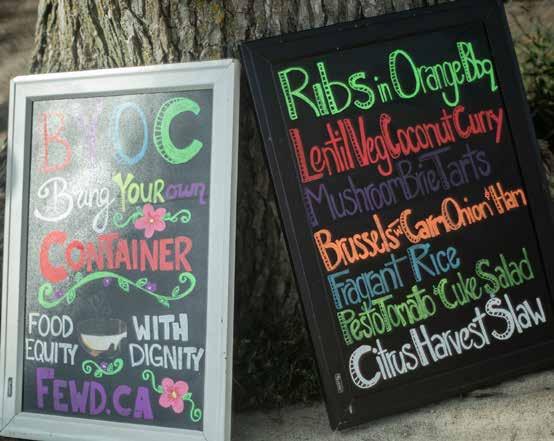 BYOC
Bring YOUR own
CONTAINER
FOOD WITH
EQUITY DIGNITY
FEWD.CA
Ribs in Orange Bbq
Lentil Veg Coconut Curry
Mushroom Brie Tarts
Brussels w Carm Onion & Ham
Fragrant Rice
Pesto Tomato & Cuke Salad
Citrus Harvest Slaw